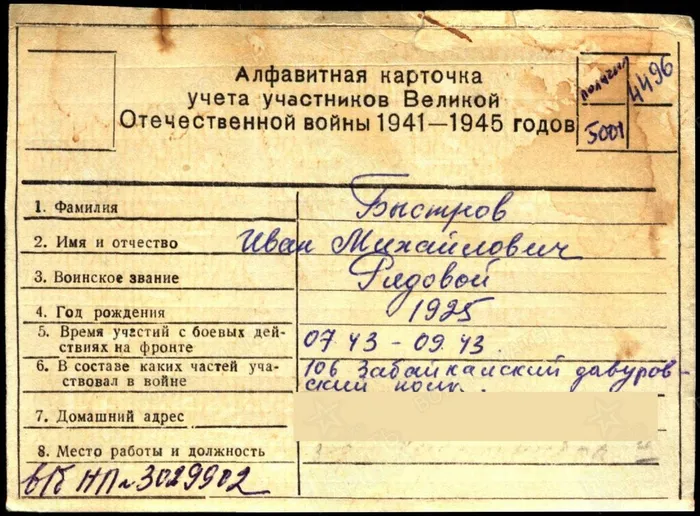 Алфавитная карточка
учета участников Великой
Отечественной войны 1941—1945 годов
4496
5001
1. Фамилия Быстров
2. Имя и отчество Иван Михайлович
3. Воинское звание Рядовой
4. Год рождения 1925
5. Время участий с боевых дей-
ствиях на фронте 07 43 - 09 43
6. В составе каких частей уча- 106 Забайкайский давуров-
ствовал в войне ский полк.
7. Домашний адрес
8. Место работы и должность
в/б НП № 3029902